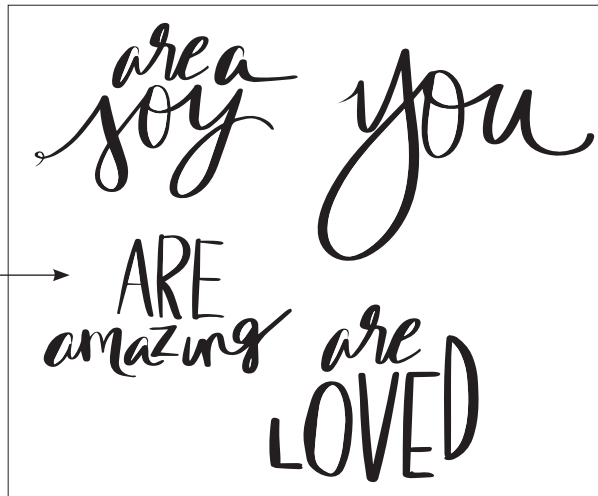 are a
joy
you
ARE
amazing
are
LOVED